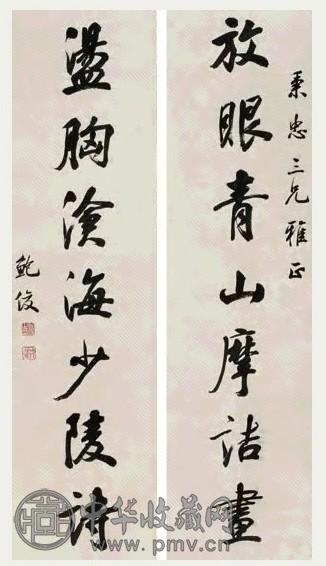 秉忠三兄雅正
放眼青山摩詰畫
盪胸滄海少陵詩
鮑俊
中华收藏网
www.pmv.cn